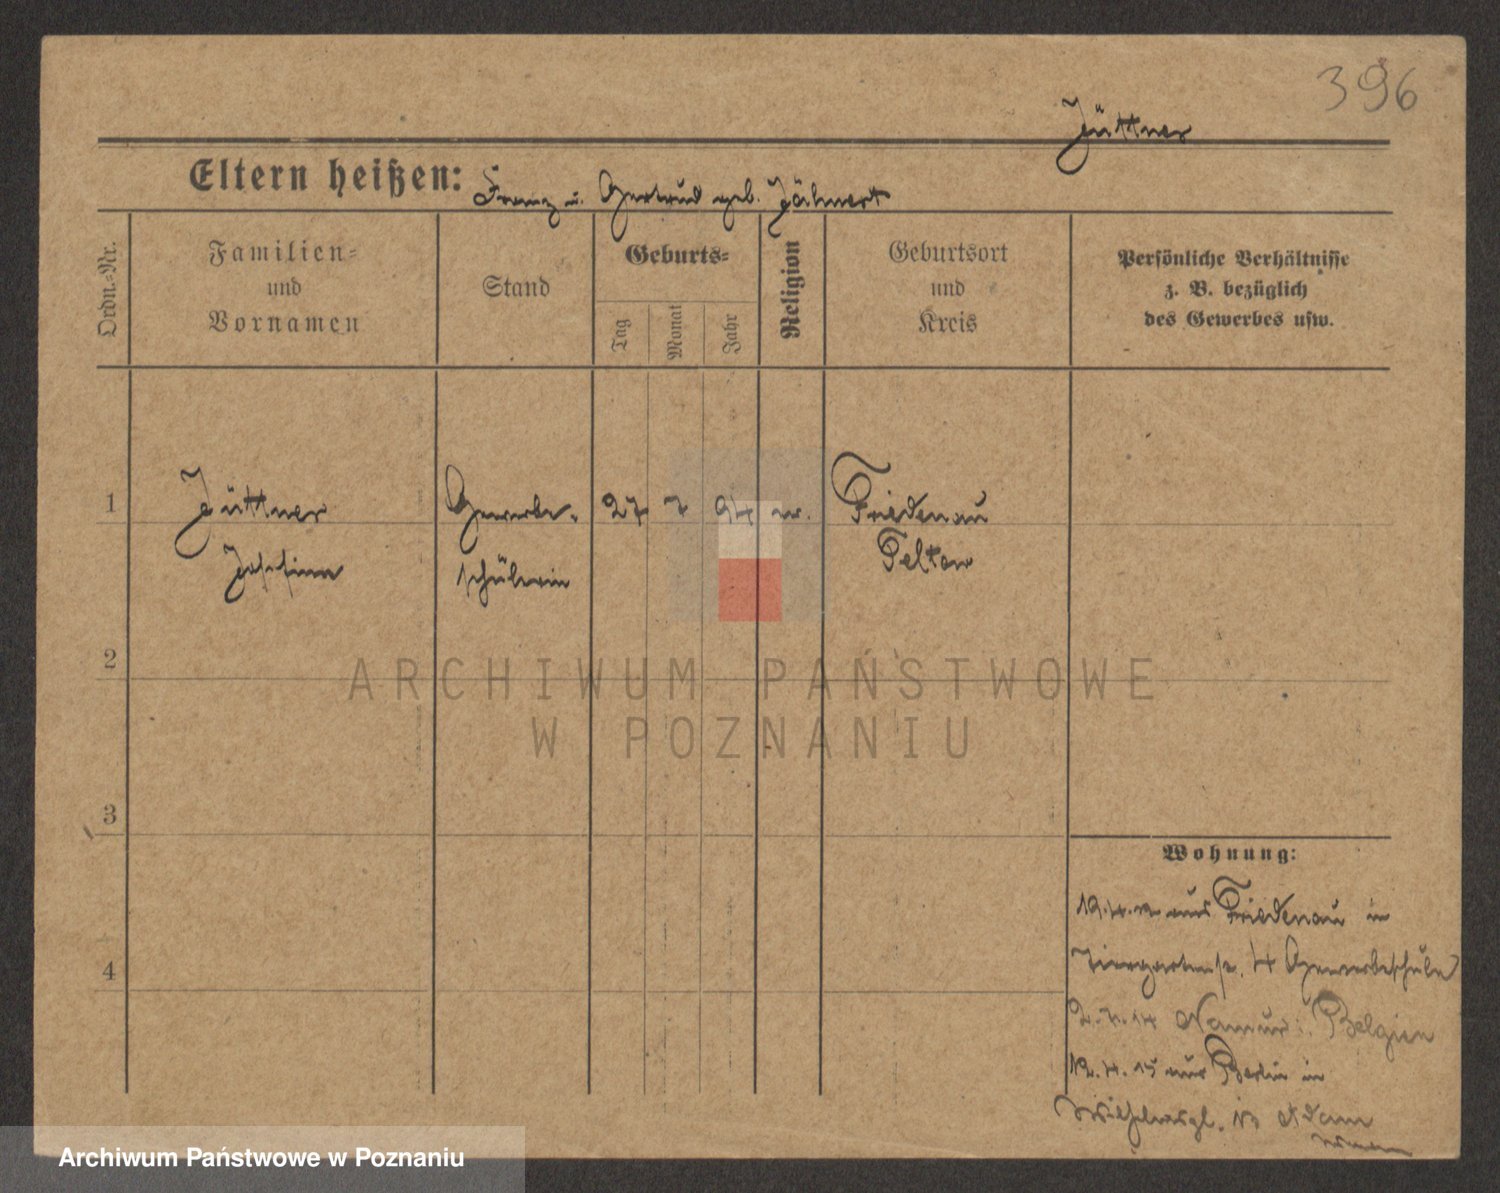 396
Jüttner
Eltern heißen: Franz u. Gertrud geb. Jähnert
Ordn.-Nr.
Familien-
und
Vornamen
Stand
Geburts-
Tag
Monat
Jahr
Religion
Geburtsort
und
Kreis
Persönliche Verhältnisse
z. B. bezüglich
des Gewerbes usw.
1 Jüttner Gewerbe- 27 7 94 Friedenau
Josefine schülerin Teltow
2
3
4
ARCHIWUM PAŃSTWOWE
W POZNANIU
Wohnung:
aus Friedenau in
Tiergartenstr. 4 Gewerbeschule
Namur i. Belgien
12.4.15 aus Berlin in
Archiwum Państwowe w Poznaniu